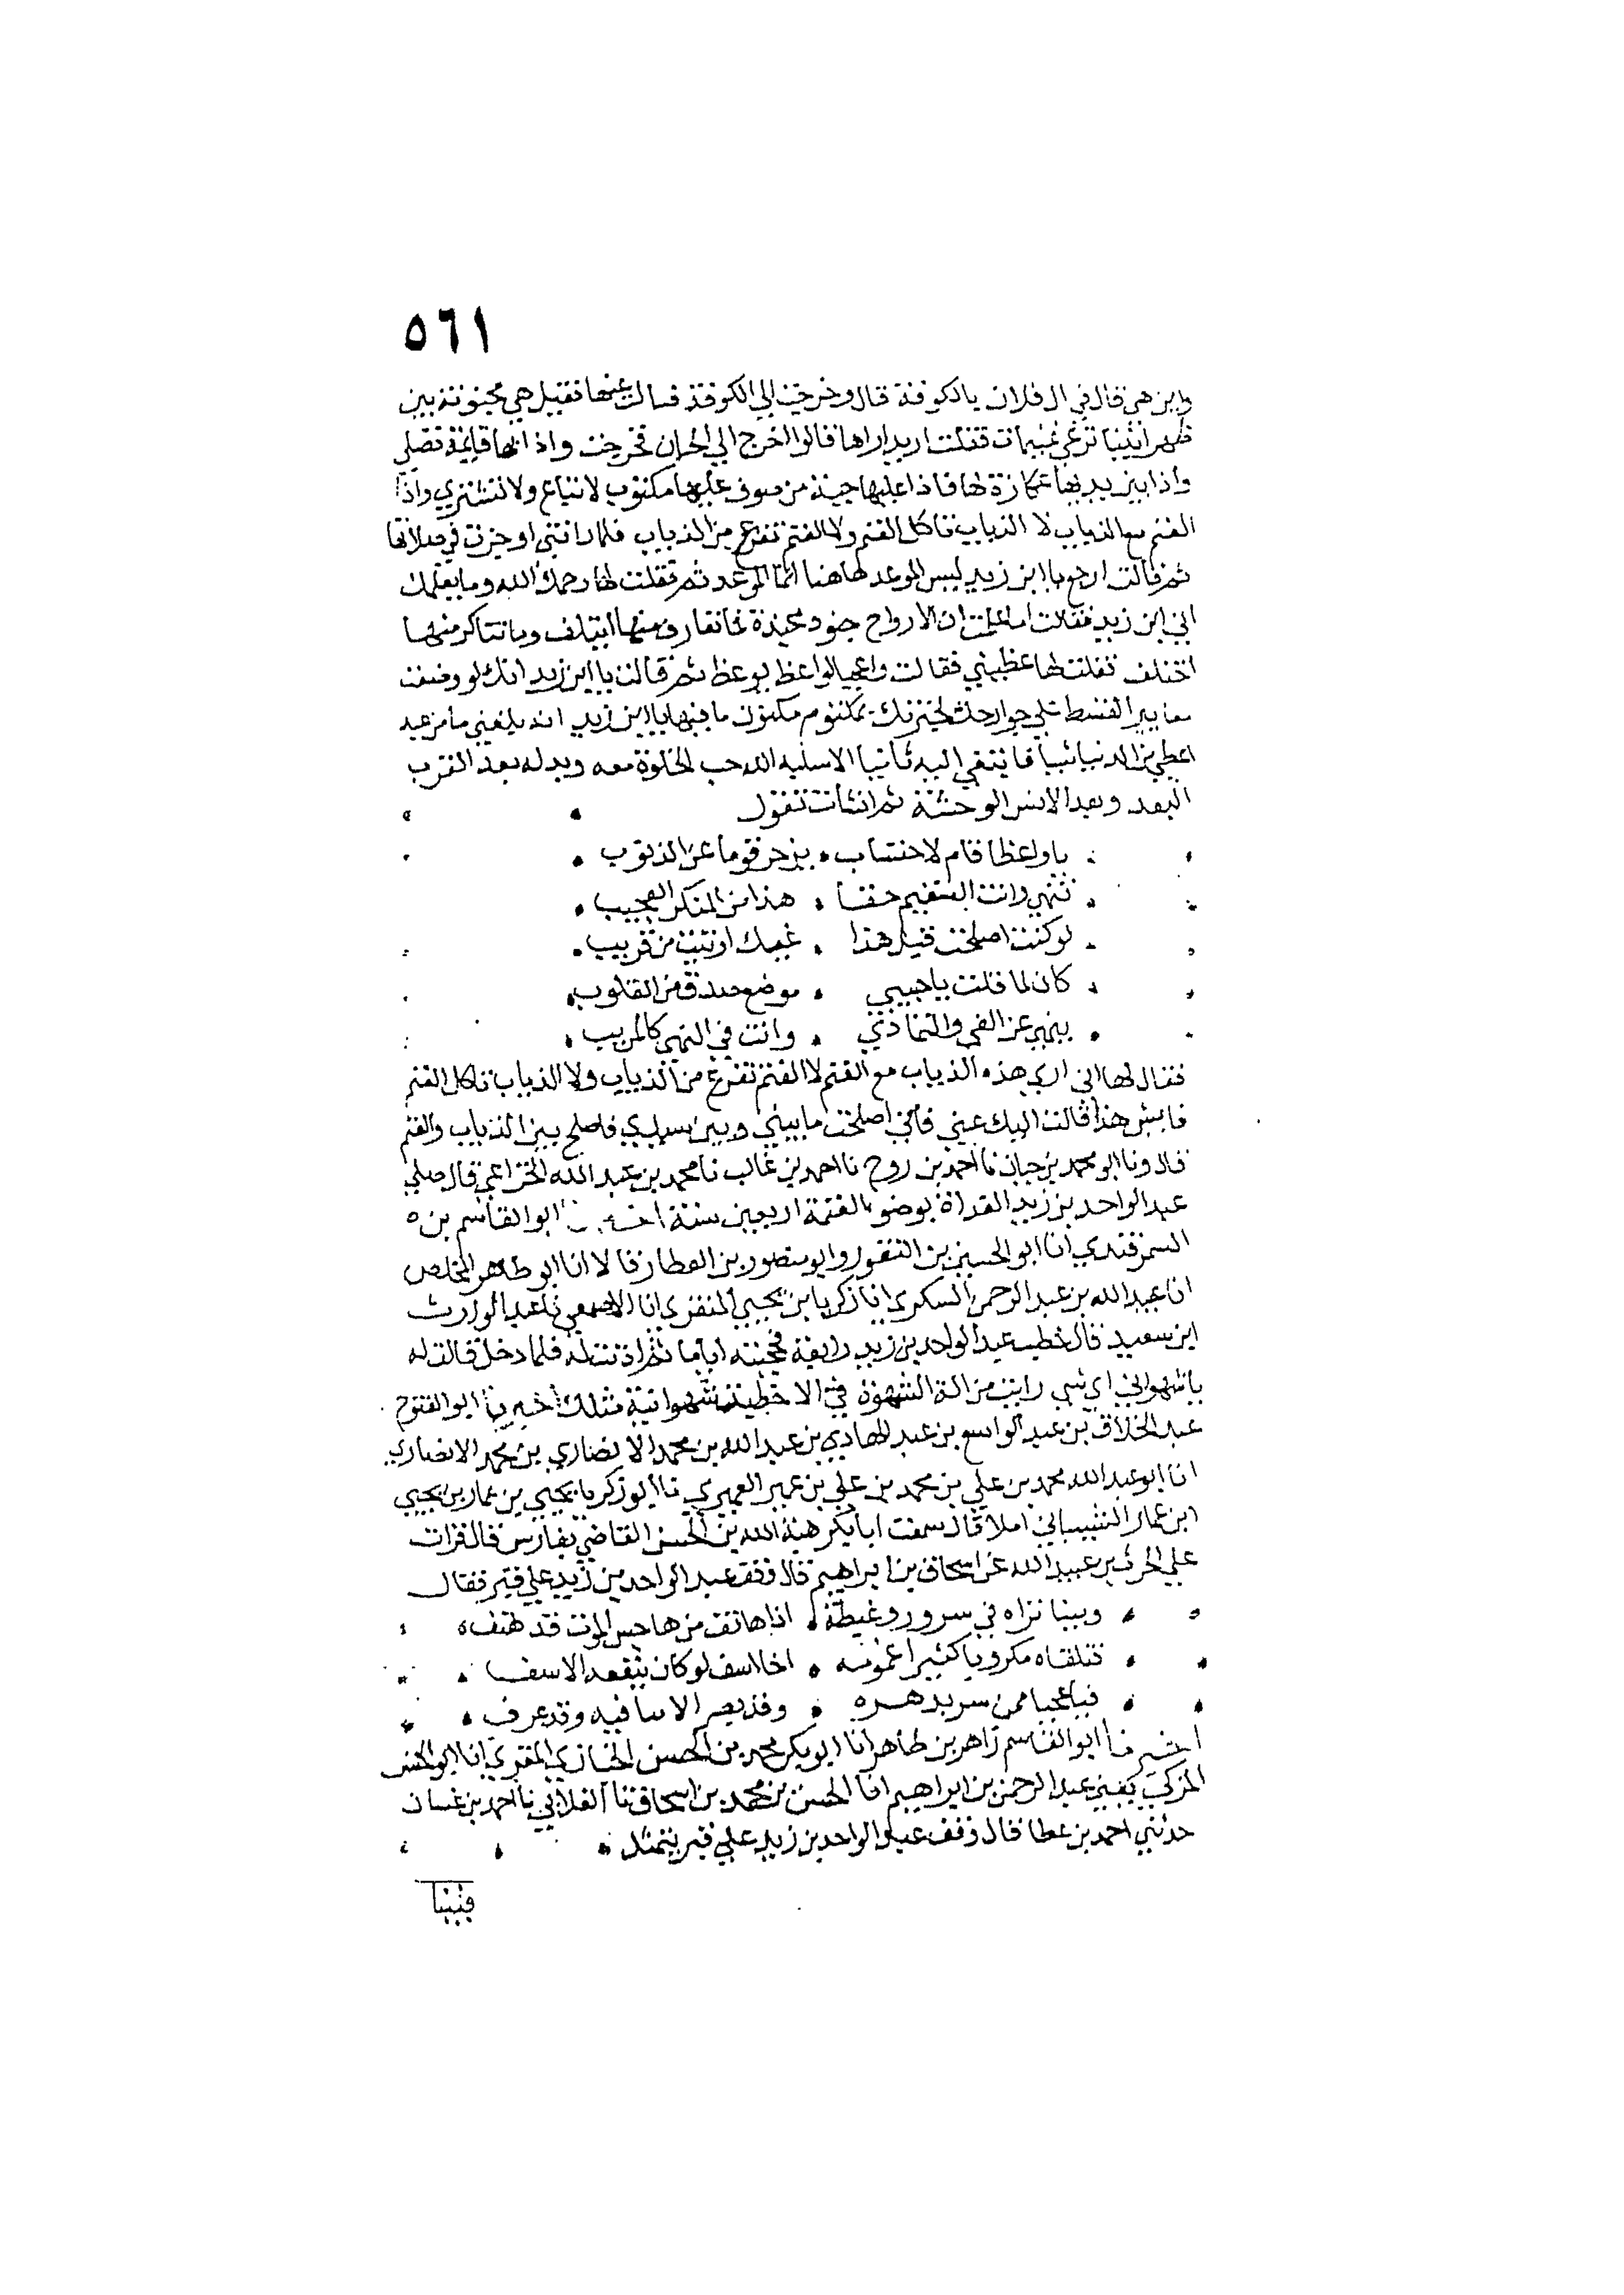 ٥٦١
واين هي قال في ال فلان بالكوفة قال وخرجت الى الكوفة فسالت عنها فقيل هي مجنونة بين
ظهرانينا ترعي غنيمات فقلت اريد اراها قالوا اخرج الي الجبان فخرجت واذا بها قايمة تصلي
واذا بين يديها عكازة لها فاذا عليها جبة من صوف عليها مكتوب لا تباع ولا تشتري واذا
الغنم مع الذياب لا الذياب تاكل الغنم ولا الغنم تفزع من الذياب فلما راتني اوجزت في صلاتها
ثم قالت ارجع يا ابن زيد ليس الموعد هاهنا انما الموعد ثم فقلت لها رحمك الله وما يعلمك
اني ابن زيد فقالت اما علمت ان الارواح جنود مجندة فما تعارف منها ايتلف وما تناكر منها
اختلف فقلت لها عظيني فقالت واعجبا لواعظ يوعظ ثم قالت يا ابن زيد انك لو وضعت
معايير القسط علي جوارحك لخبرتك بمكتوم مكنون ما فيها يا ابن زيد انه بلغني ما من عبد
اعطي من الدنيا شيا فابتغي اليه ثانيا الا سلبه الله حب الخلوة معه وبدله بعد القرب
البعد وبعد الانس الوحشة ثم انشات تقول
يا واعظا قام لاحتساب يزجر قوما عن الذنوب
تنهي وانت السقيم حقا هذا من المنكر العجيب
لو كنت اصلحت قبل هذا غيك او تبت من قريب
كان لما قلت يا حبيبي موضع صدق من القلوب
ينهي عن الغي والتمادي وانت في النهي كالمريب
فقال لها اني اري هذه الذياب مع الغنم لا الغنم تفزع من الذياب ولا الذياب تاكل الغنم
فايش هذا قالت اليك عني فاني اصلحت ما بيني وبين سيدي فاصلح بين الذياب والغنم
قال ونا ابو محمد بن حيان نا احمد بن روح نا احمد بن غالب نا محمد بن عبد الله الخزاعي قال صلي
عبد الواحد بن زيد الغداة بوضو العتمة اربعين سنة ابو القاسم بن
السمرقندي انا ابو الحسين بن النقور وابو منصور بن العطار قالا انا ابو طاهر المخلص
انا عبيد الله بن عبد الرحمن السكري انا زكريا بن يحيي المنقري نا الاصمعي نا عبد الوارث
ابن سعيد قال خطب عبد الواحد بن زيد رابعة فحجبته اياما ثم اذنت له فلما دخل قالت له
يا شهواني اي شي رايت من الة الشهوة في الا خطبت شهوانية مثلك اخبرنا ابو الفتوح
عبد الخلاق بن عبد الواسع بن عبد الهادي بن عبد الله بن محمد الانصاري بن محمد الانصاري
انا ابو عبد الله محمد بن علي بن محمد بن علي بن عمير العميري نا ابو زكريا يحيي بن عمار بن يحيي
ابن عمار الشيباني املا قال سمعت ابا بكر هبة الله بن الحسن القاضي بفارس قال قرات
علي الحرث بن عبيد الله عن اسحاق بن ابراهيم قال وقف عبد الواحد بن زيد علي قبر فقال
وبينا تراه في سرور وغبطة اذا هاتف من هاجس الموت قد هتف
فتلقاه مكروبا كثيرا غمومه اخا اسف لو كان ينفعه الاسف
فيا عجبا ممن سر بدهره وقد بصر الاسا فيه وقد عرف
اخبرنا ابو القاسم زاهر بن طاهر انا ابو بكر محمد بن الحسن الخبازي المقري انا ابو الحسن
المزكي يعني عبد الرحمن بن ابراهيم انا الحسن بن محمد بن اسحاق نا الغلابي نا احمد بن غسان
حدثني احمد بن عطا قال وقف عبد الواحد بن زيد علي قبر يتمثل
فبينا